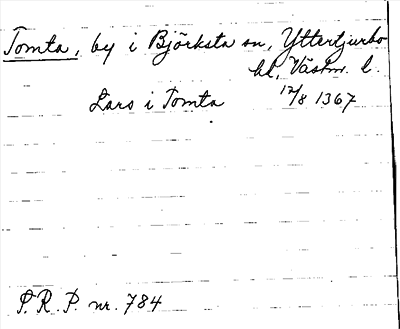 Tomta, by i Björksta sn, Yttertjurbo
hd, Västm. l.
Lars i Tomta 12/8 1367
P.R.P. nr. 784